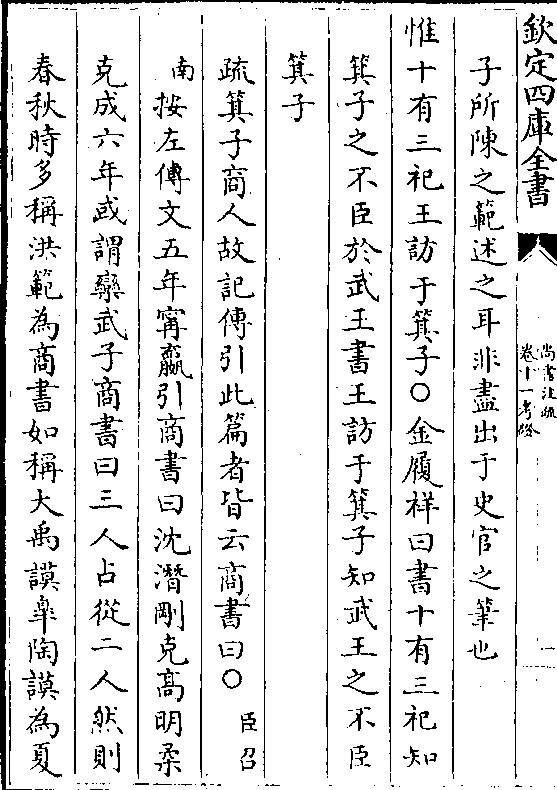 欽定四庫全書
尚書注疏
卷十一考證
一
子所陳之範述之耳非盡出于史官之筆也
惟十有三祀王訪于箕子○金履祥曰書十有三祀知
箕子之不臣於武王書王訪于箕子知武王之不臣
箕子
疏箕子商人故記傳引此篇者皆云商書曰○臣召
南按左傳文五年甯嬴引商書曰沈潛剛克高明柔
克成六年或謂欒武子商書曰三人占從二人然則
春秋時多稱洪範為商書如稱大禹謨臯陶謨為夏